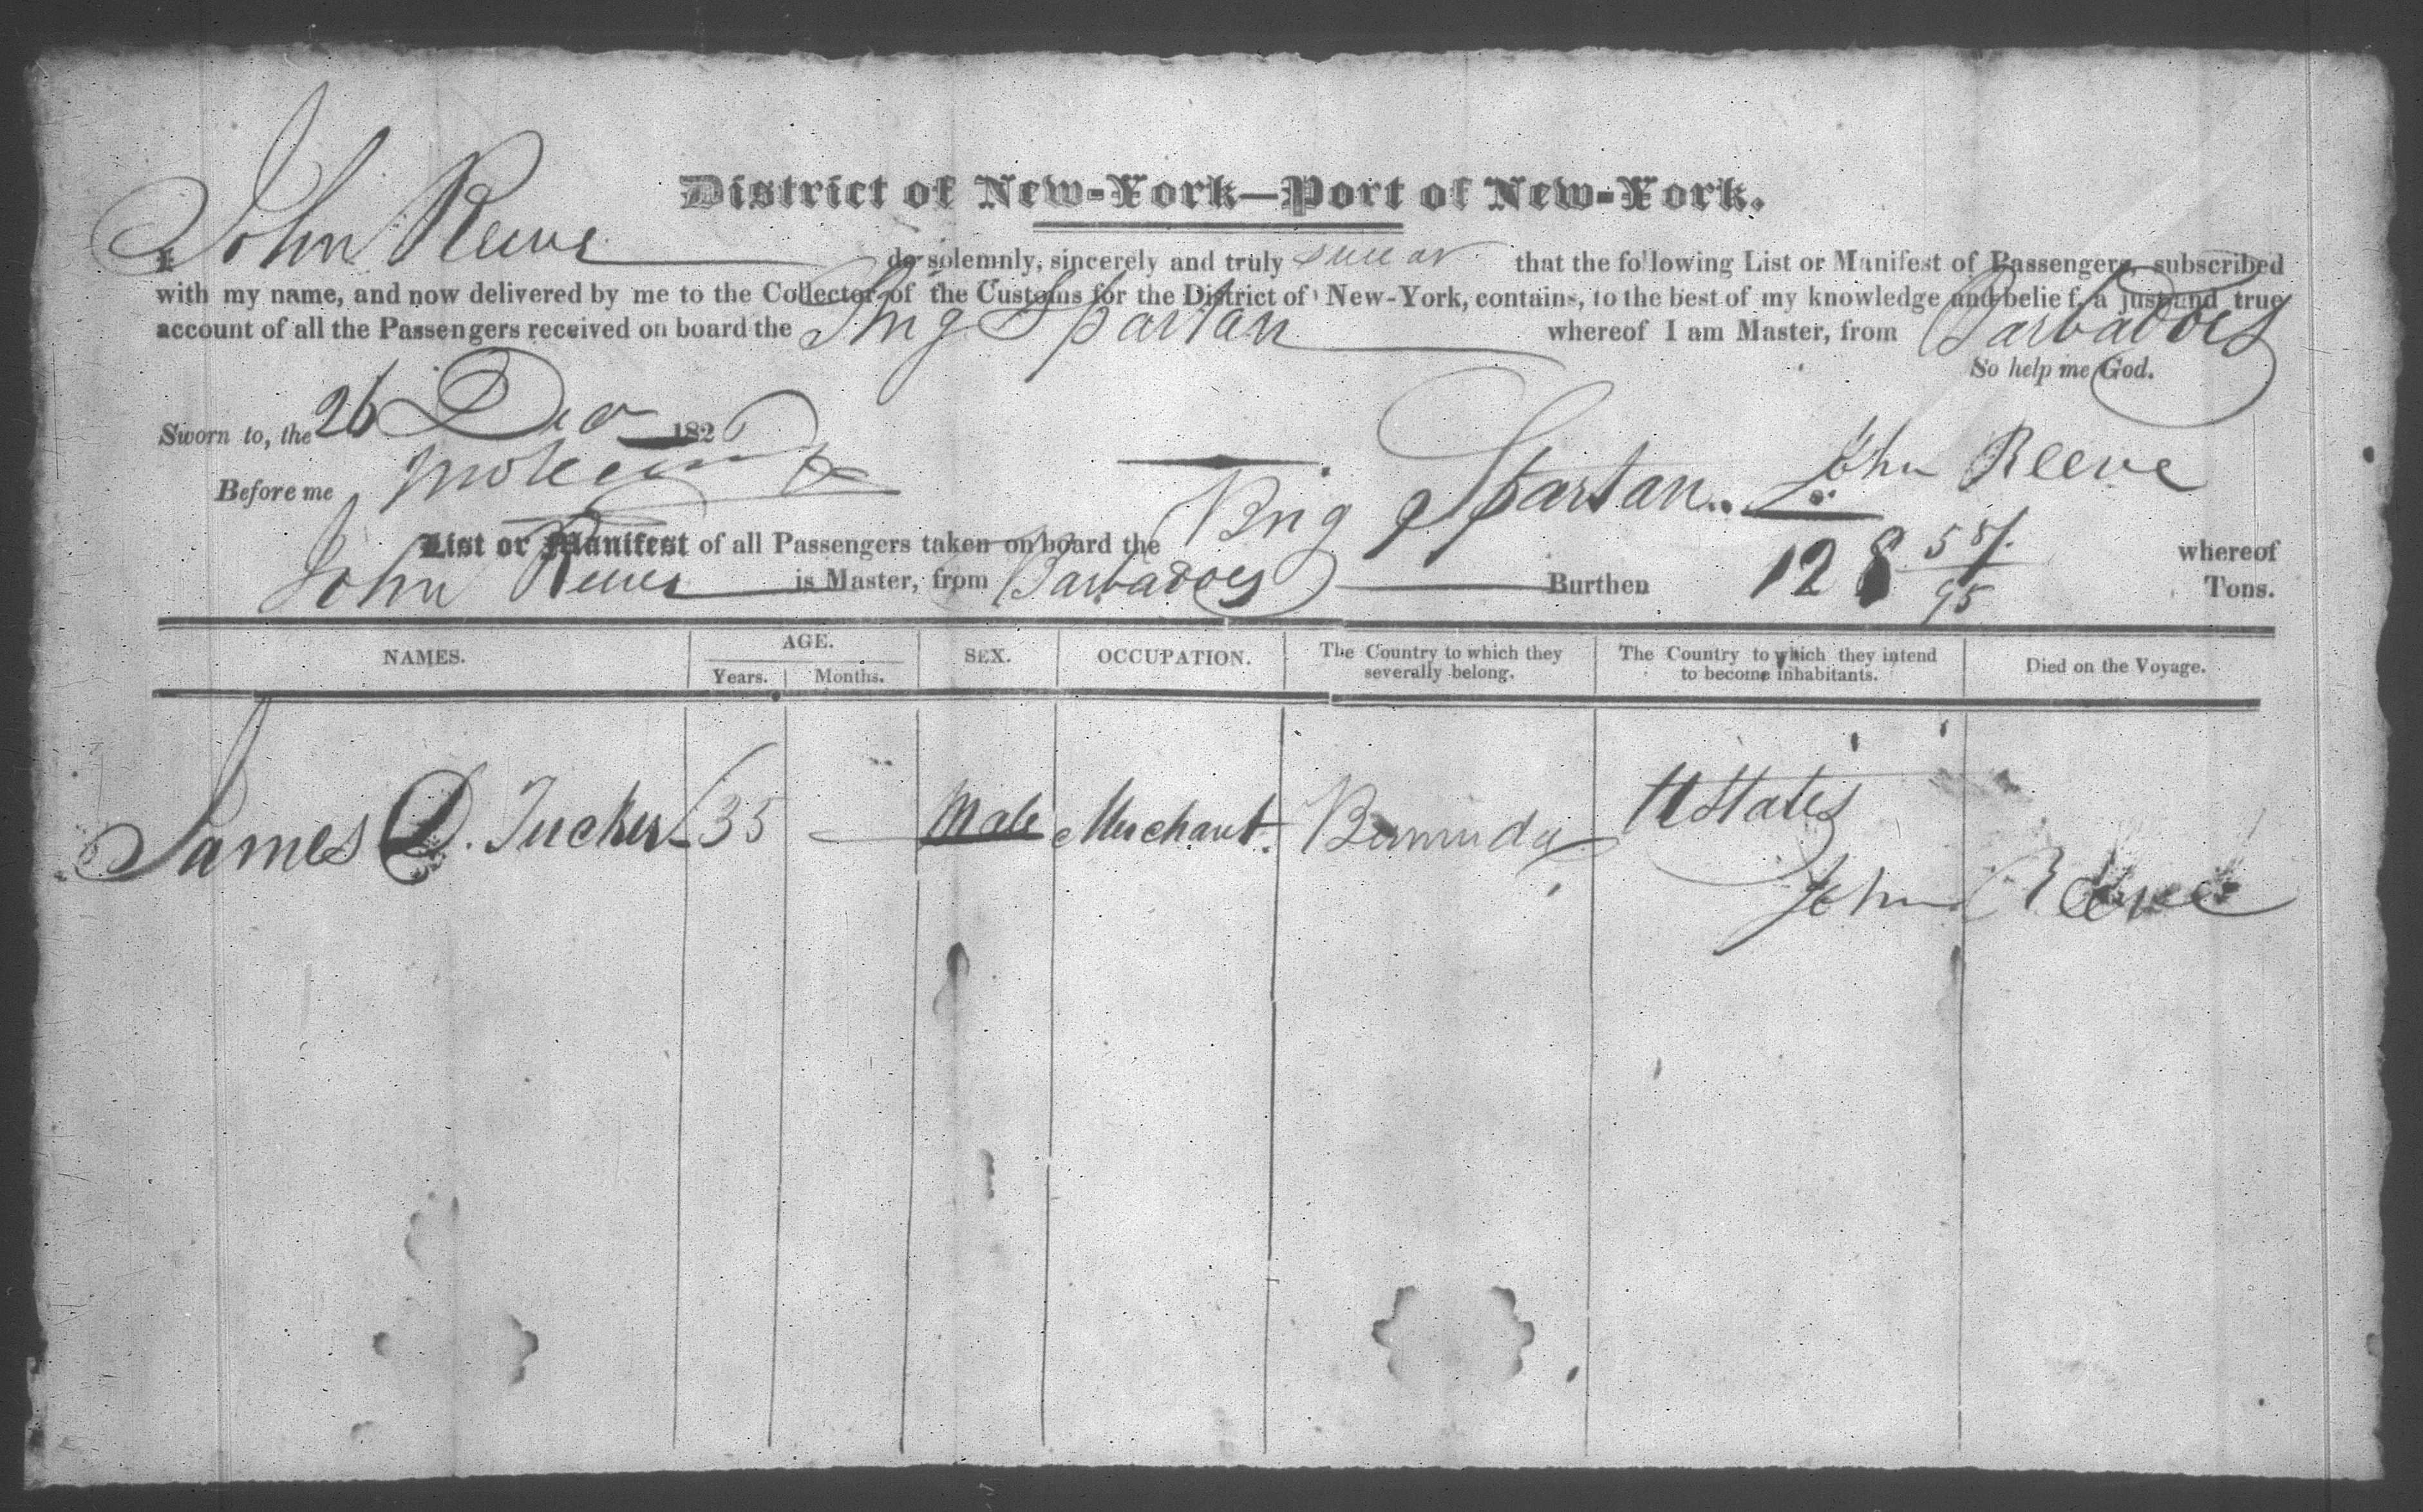 District of New-York—Port of New-York.
I John Reeve do solemnly, sincerely and truly swear that the following List or Manifest of Passengers, subscribed
with my name, and now delivered by me to the Collector of the Customs for the District of New-York, contains, to the best of my knowledge and belief, a just and true
account of all the Passengers received on board the Brig Spartan whereof I am Master, from Barbadoes
So help me God.
Sworn to, the 26 Decr 182
Before me
John Reeve
List or Manifest of all Passengers taken on board the Brig Spartan whereof
John Reeve is Master, from Barbadoes Burthen 128 58/95 Tons.
NAMES. AGE. SEX. OCCUPATION. The Country to which they severally belong. The Country to which they intend to become inhabitants. Died on the Voyage.
Years. Months.
James D. Tucker 35 — Male Merchant. Bermuda U States
John Reeve